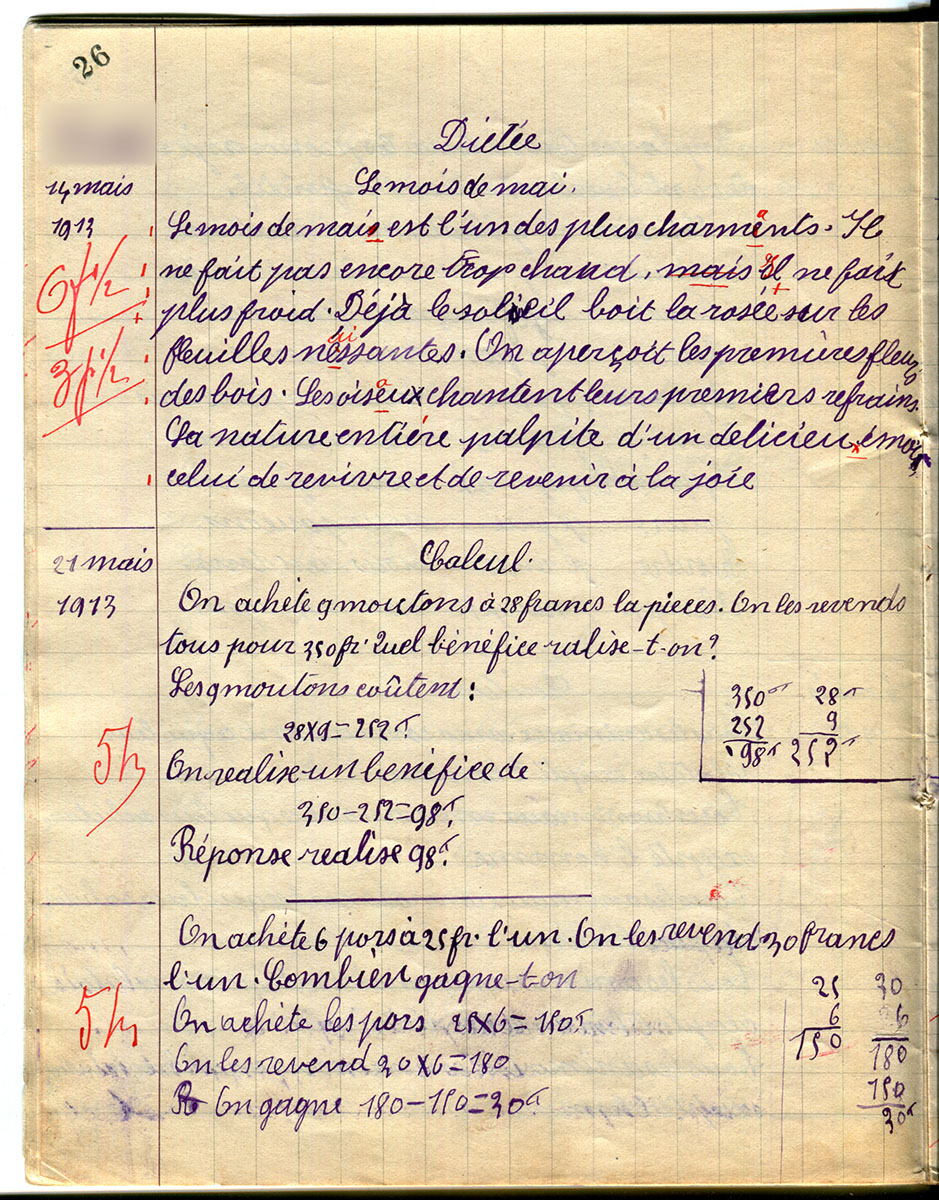 26
Dictée
Le mois de mai.
14 mais
1913
Le mois de mais est l'un des plus charments. Il
ne fait pas encore trop chaud, mais il ne fait
plus froid. Déjà le soleil boit la rosée sur les
feuilles nessantes. On aperçoit les premières fleurs
des bois. Les oiseux chantent leurs premiers refrains.
La nature entiére palpite d'un delicieu émoi
celui de revivre et de revenir à la joie
6f 1/2
3f 1/2
21 mais
1913
Calcul.
On achéte 9 moutons à 28 francs la pieces. On les revends
tous pour 350 fr. Quel bénéfice ralise-t-on?
Les 9 moutons coûtent:
28×9=252f.
On realise un benéfice de
350-252=98f.
Réponse realise 98f.
350f 28f
252 9
98f 252f
On achéte 6 pors à 25 fr. l'un. On les revend 30 francs
l'un. Combien gagne-t-on
On achéte les pors 25×6=150f
On les revend 30×6=180
R On gagne 180-150=30f
25 30
6 6
150 180
150
30f